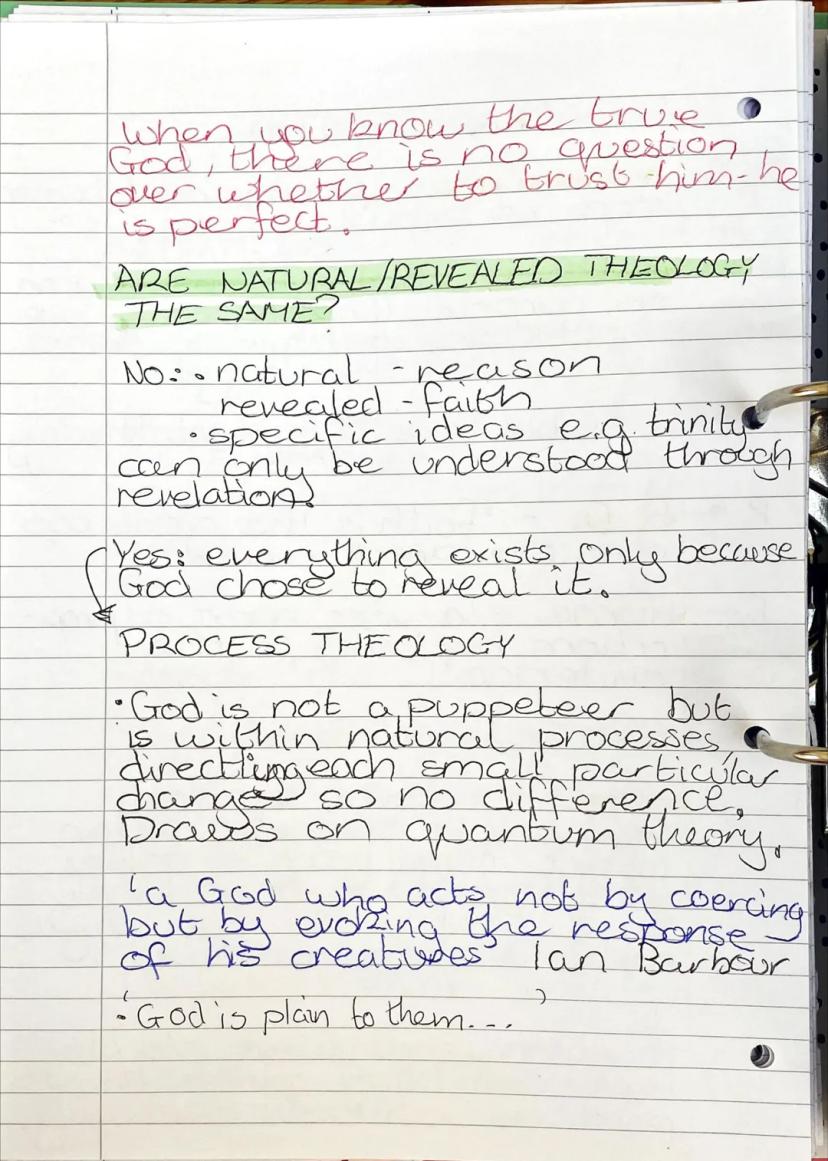 When you know the true
God, there is no question
over whether to trust him - he
is perfect.
ARE NATURAL/REVEALED THEOLOGY
THE SAME?
No: • natural - reason
revealed - faith
• specific ideas e.g. trinity
can only be understood through
revelation.
Yes: everything exists only because
God chose to reveal it.
PROCESS THEOLOGY
• God is not a puppeteer but
is within natural processes,
directing each small particular
change so no difference.
Draws on quantum theory.
'a God who acts not by coercing
but by evoking the response
of his creatures' Ian Barbour
• 'God is plain to them...'